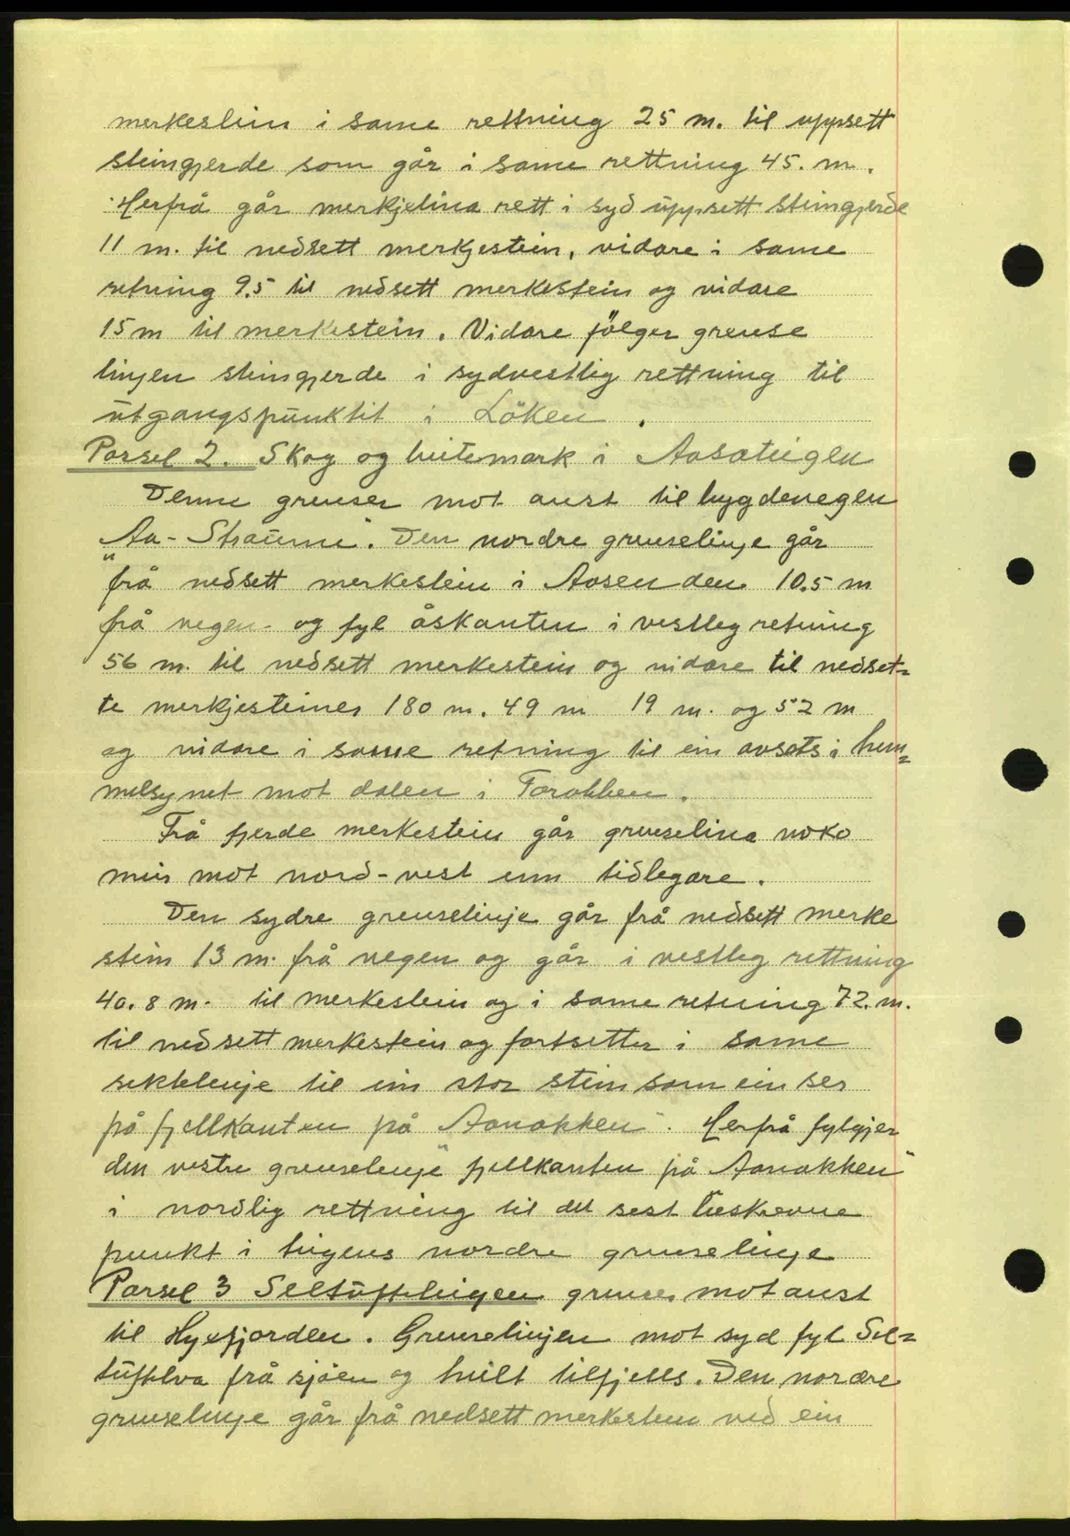 merkeslein i same rettning 25 m. til uppsett
steingjerde som går i same rettning 45. m.
Herfrå går merkjelina rett i syd uppsett steingjerde
11 m. til nedsett merkjestein, vidare i same
retning 9.5 til nedsett merkestein og vidare
15 m til merkestein. Vidare fölger grense
linjen steingjerde i sydvestlig rettning til
utgangspunktit i Löken.
Parsel 2. Skog og beitemark i Aasateigen
Denne grenser mot aust til bygdevegen
Aa-Straume". Den nordre grenselinje går
"frå nedsett merkestein i Aasenden 10.5 m
frå vegen og fyl åskanten i vestleg retning
56 m. til nedsett merkestein og vidare til nedset-
te merkjesteiner 180 m. 49 m 19 m. og 52 m
og vidare i same retning til ein avsats i him-
melsynet mot dalen i Tarakken.
Frå fjerde merkestein går grenselina noko
min mot nord-vest enn tidlegare.
Den sydre grenselinje går frå nedsett merke
stein 13 m. frå vegen og går i vestleg rettning
40.8 m. til merkestein og i same retning 72. m.
til nedsett merkestein og fortsetter i same
siktelinje til ein stor stein som ein ser
på fjellkanten på Aanakken". Herfrå fylgjer
den vestre grenselinje fjellkanten på "Aanakken"
i nordlig rettning til det sest beskrevne
punkt i teigens nordre grenselinje
Parsel 3 Seltuftteigen grenser mot aust
til Hyefjorden. Grenselinjen mot syd fyl Sel-
tuftelva frå sjöen og heilt tilfjells. Den nordre
grenselinje går frå nedsett merkestein ved ein